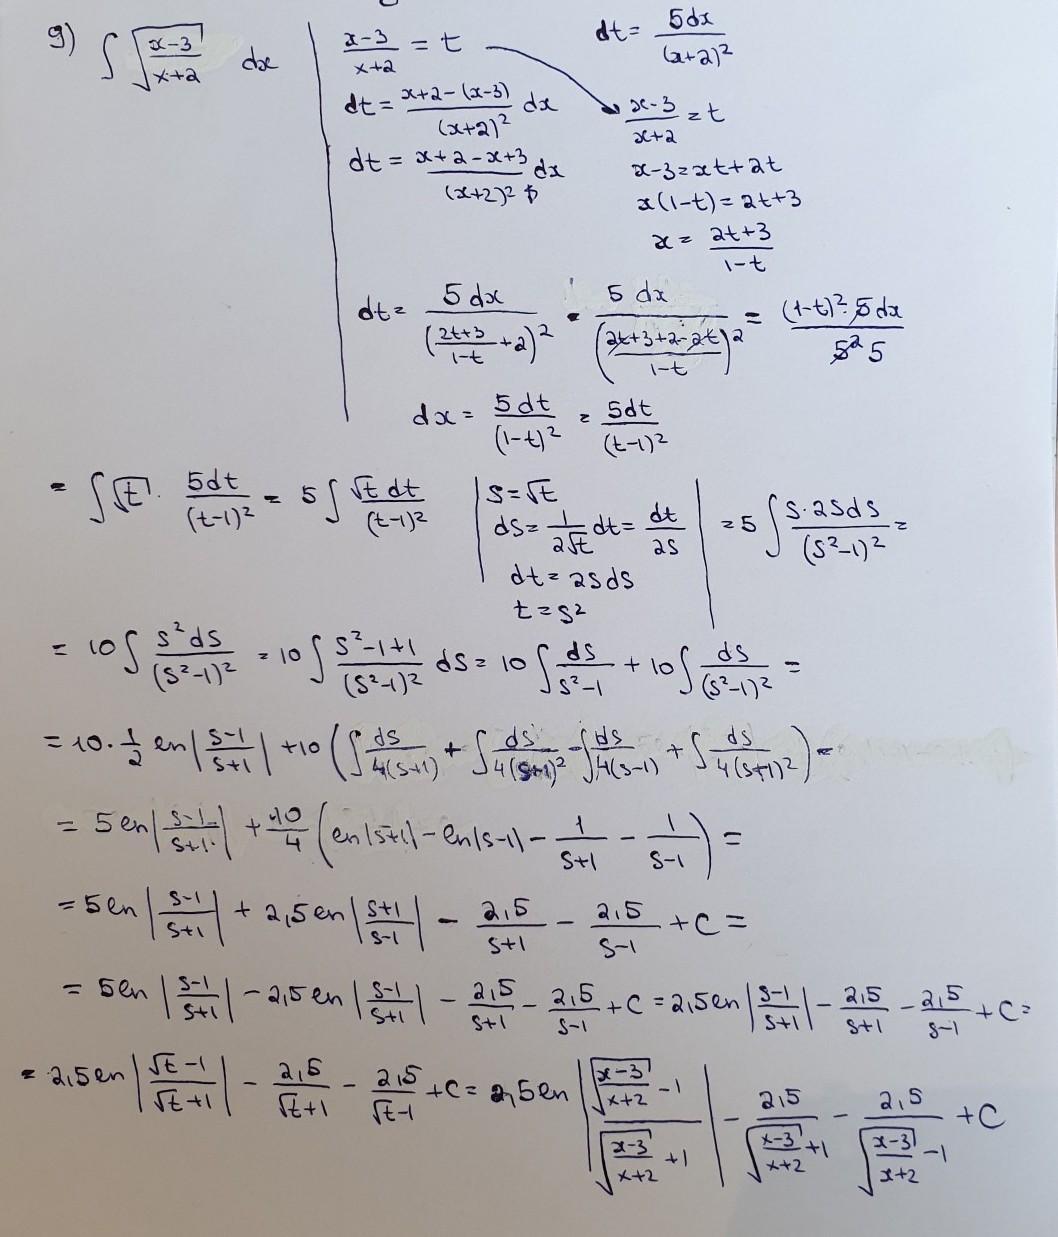 g) ∫ √((x-3)/(x+2)) dx | (x-3)/(x+2) = t
dt = (x+2-(x-3))/(x+2)² dx
dt = (x+2-x+3)/(x+2)² dx
dt = 5dx/(x+2)²
(x-3)/(x+2) = t
x-3 = xt+2t
x(1-t) = 2t+3
x = (2t+3)/(1-t)
dt = 5dx/((2t+3)/(1-t) + 2)² = 5dx/((2t+3+2-2t)/(1-t))² = (1-t)²·5dx/5² 5
dx = 5dt/(1-t)² = 5dt/(t-1)²
= ∫ √t · 5dt/(t-1)² = 5 ∫ √t dt/(t-1)² | s = √t
ds = 1/(2√t) dt = dt/2s
dt = 2sds
t = s² | = 5 ∫ s·2sds/(s²-1)² =
= 10 ∫ s²ds/(s²-1)² = 10 ∫ (s²-1+1)/(s²-1)² ds = 10 ∫ ds/(s²-1) + 10 ∫ ds/(s²-1)² =
= 10·1/2 ln|(s-1)/(s+1)| + 10 (∫ ds/4(s+1) + ∫ ds/4(s+1)² - ∫ ds/4(s-1) + ∫ ds/4(s-1)²) =
= 5ln|(s-1)/(s+1)| + 10/4 (ln|s+1| - ln|s-1| - 1/(s+1) - 1/(s-1)) =
= 5ln|(s-1)/(s+1)| + 2,5ln|(s+1)/(s-1)| - 2,5/(s+1) - 2,5/(s-1) + C =
= 5ln|(s-1)/(s+1)| - 2,5ln|(s-1)/(s+1)| - 2,5/(s+1) - 2,5/(s-1) + C = 2,5ln|(s-1)/(s+1)| - 2,5/(s+1) - 2,5/(s-1) + C =
= 2,5ln|(√t-1)/(√t+1)| - 2,5/(√t+1) - 2,5/(√t-1) + C = 2,5ln|(√((x-3)/(x+2)) - 1)/(√((x-3)/(x+2)) + 1)| - 2,5/(√((x-3)/(x+2)) + 1) - 2,5/(√((x-3)/(x+2)) - 1) + C